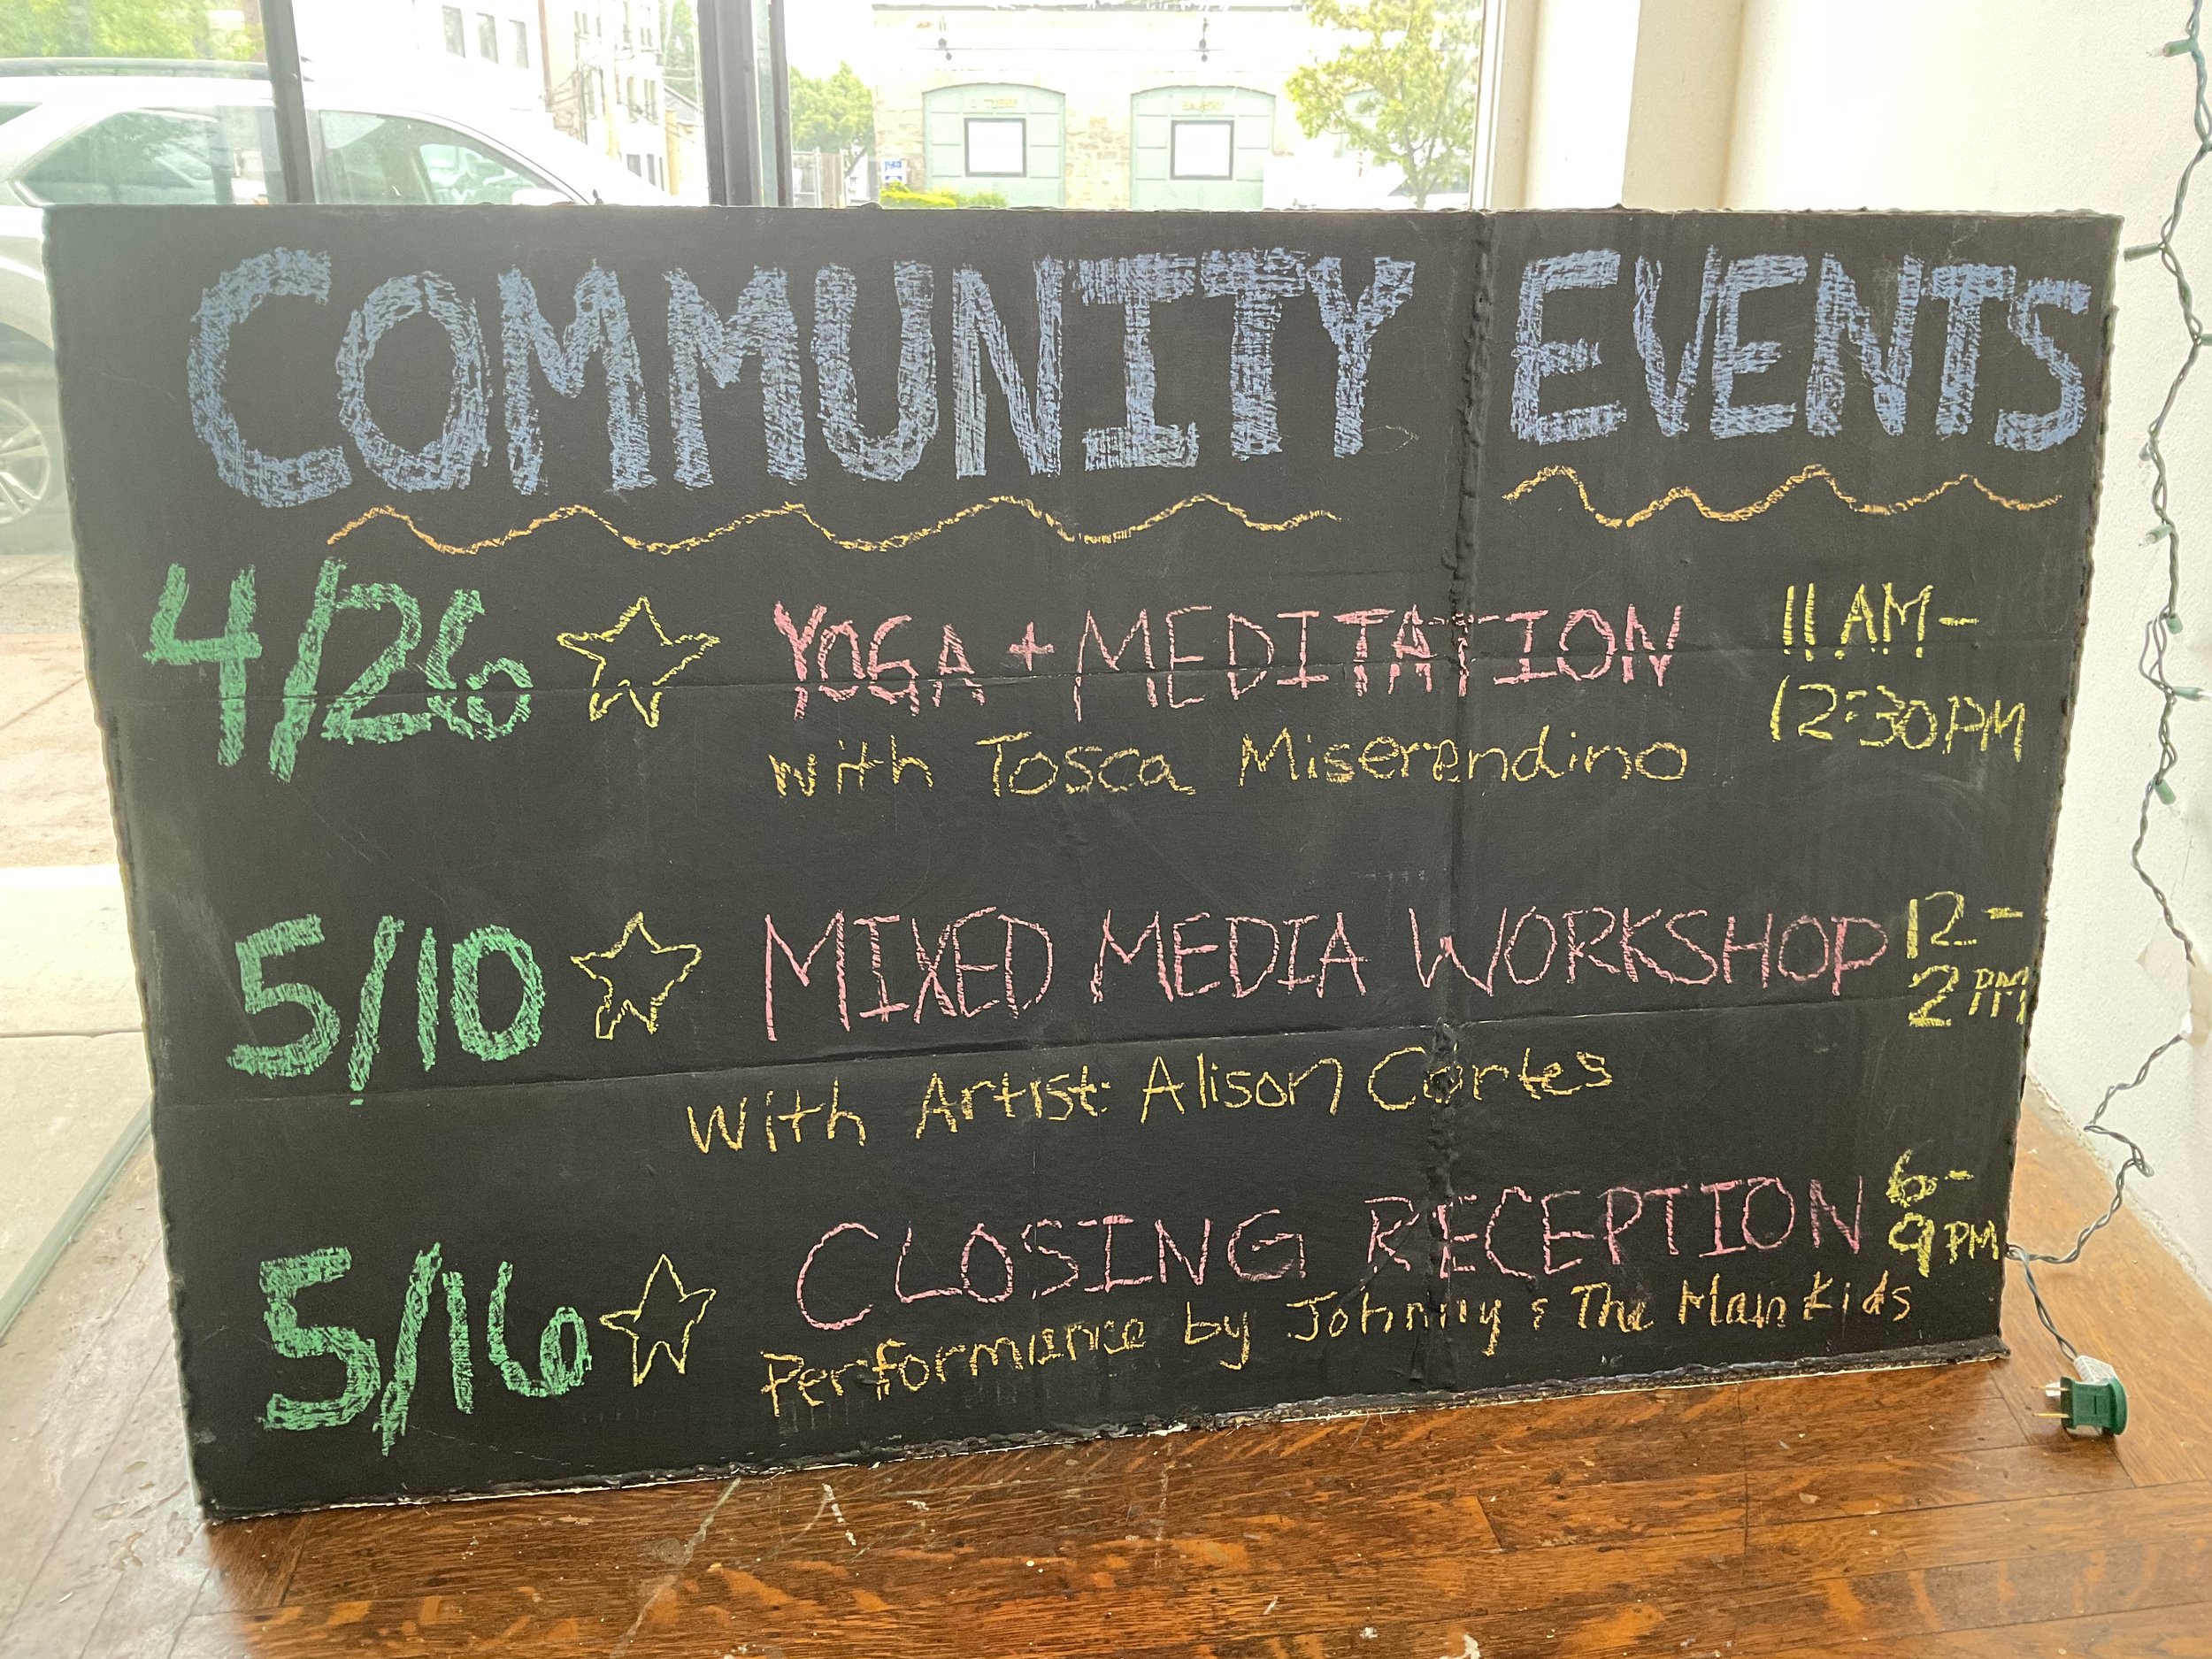 COMMUNITY EVENTS
4/26 ☆ YOGA + MEDITATION 11 AM-
12:30 PM
with Tosca Miserendino
5/10 ☆ MIXED MEDIA WORKSHOP 12-
2 PM
With Artist: Alison Cortes
5/16 ☆ CLOSING RECEPTION 6-
9 PM
Performance by Johnny & The Man Kids